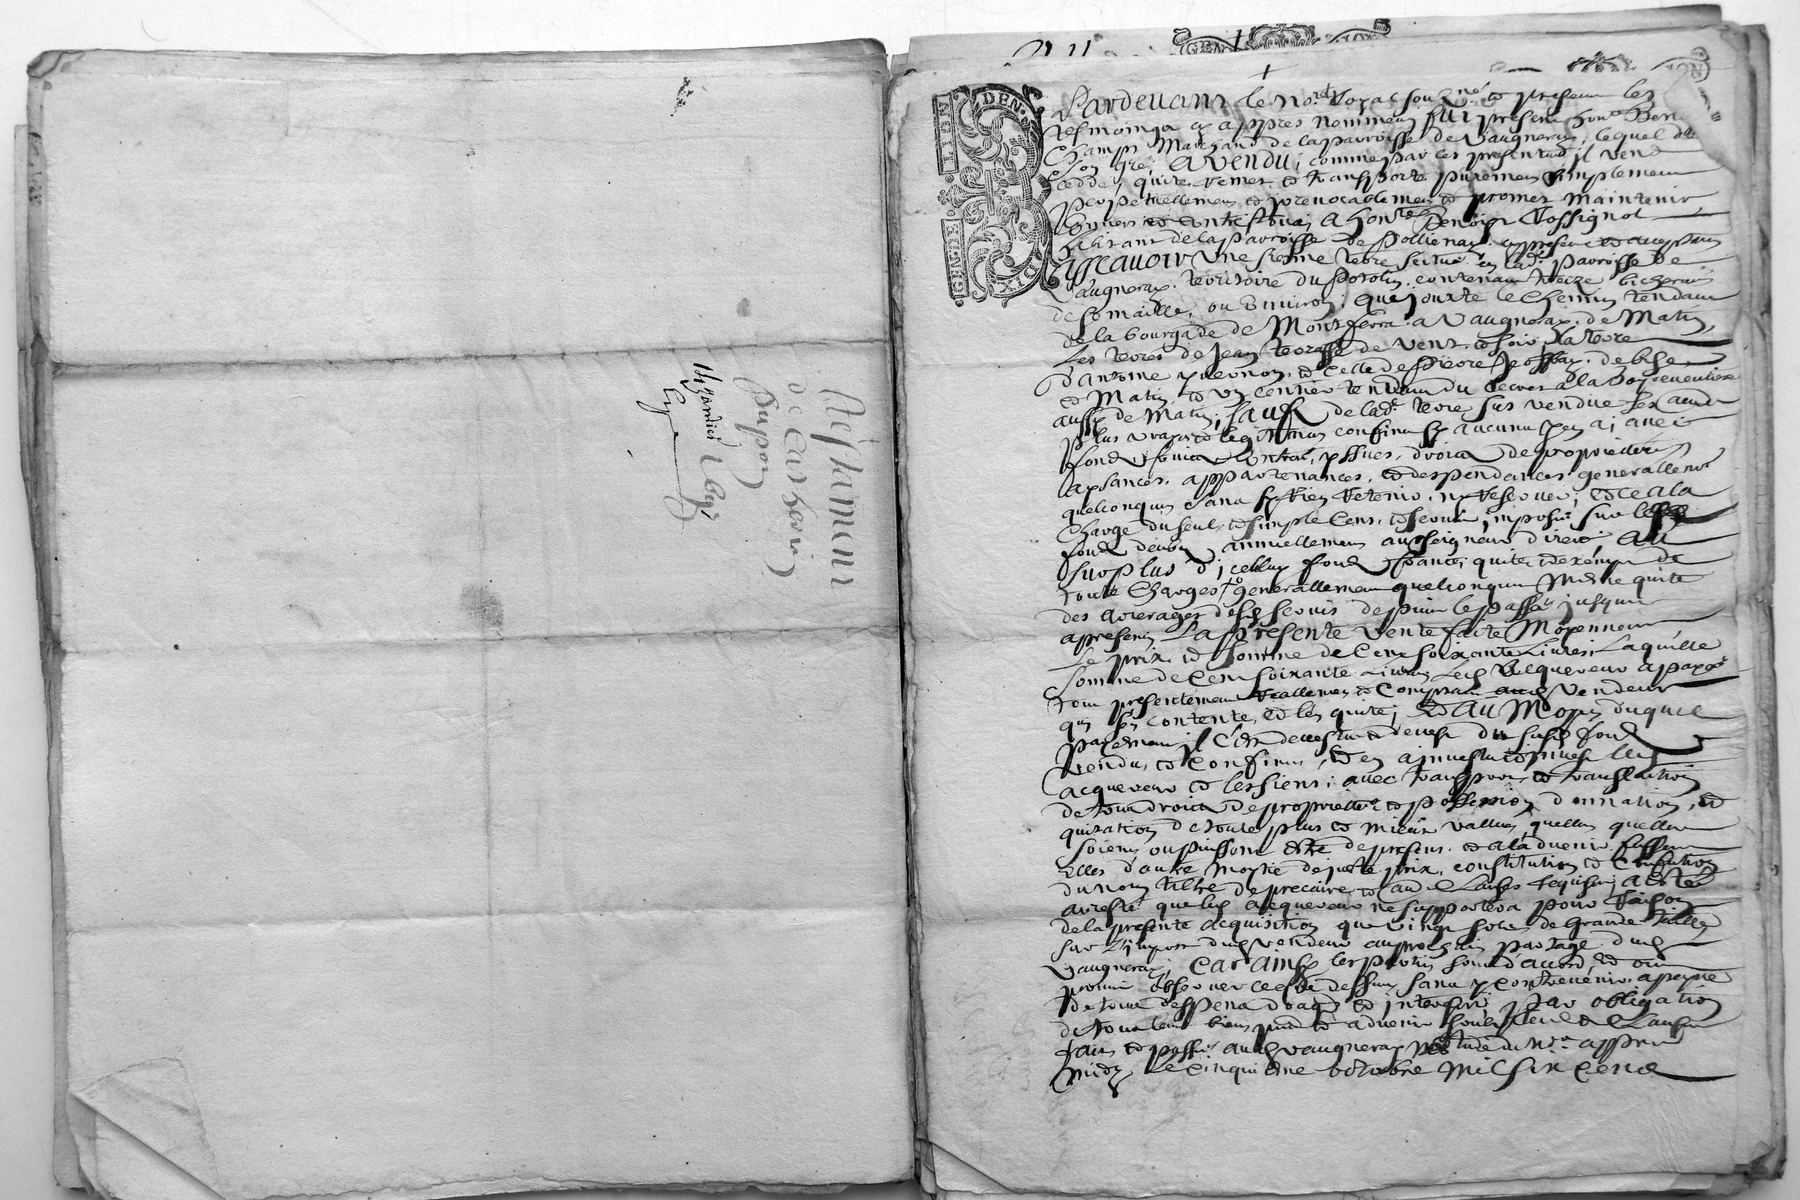 Testament
de Catherin
Dupon
14 janvier 1693
GEN. DE. LION
DEN.
DIX
Pardevant le no.re Royal soubz.né et present les
tesmoings cy appres nommeis fut present hon.e
Champs Marchand de la parroisse de Vaugneray, lequel de
son gré, a vendu, comme par ces presentes il vend
cedde, quite, remet et transporte purement simplement
perpetuellement et irrevocablement et promet maintenir
a hon.te Benoist Rossignol
habitant de la parroisse de Pollienay, present et acceptant
assçavoir une sienne terre scitue en lad. parroisse de
Vaugneray, territoire du contenant treize bicherées
de semaille, ou environ, que jouxte le chemin tendant
de la bourgade de Montferra a Vaugneray, de Matin,
Les terres de Jean de vent et soir, la terre
d'antoine et celle de pierre de bise
et Matin, et un sentier tendant du
aussy de Matin, sauf de lad. terre sus vendue les autres
plus vrays et legitimes confins sy aucuns y en a, avec
fonds, fruits, entrées, yssues, droits de proprietté,
aysances, appartenances, et despendances generallement
quelconques sans sy rien retenir, ny reserver, et ce a la
charge du seul et simple cens, et servis imposés sur led.
fonds deubz annuellement au seigneur direct Au
surplus d'icelluy fonds franc, quite et exempt de
toute charges generallement quelconques Mesme quite
des arrerages desd. servis depuis le passé jusques
a present La presente vente faite Moyennant
Le prix et somme de Cent soixante Livres, Laquelle
somme de Cent soixante Livres led. acquereur a payé
tout presentement reallement et Comptant aud. vendeur
qui s'en contente et l'en quite, Et Au Moyen duquel
payement il s'est devestu et devest du susd. fonds
vendu et confiné, et en a investu et investi led.
acquereur et les siens, avec transport et translation
de tous droits de proprietté et possession donnation, et
quitation de toute plus et mieux vallue, quelles quelles
soient ou puissent estre de present et a ladvenir, fussent
Elles d'outre Moytié de juste prix, constitution et
du nom tiltre de precaire et autres clauses requises, A esté
arresté que led. acquereur ne supportera pour raison
de la presente acquisition que vingt sols de grande taille
sur L'impos dud. vendeur au prochain partage dud.
Vaugneray, Car ainsy les parties sont d'accord, et ont
promis observer ce que dessus sans y contrevenir, a peyne
de tous despens domages et interests, par obligation
de tous leurs biens presents et advenir soubz Clauses
fait et passé aud. vaugneray estude du no.re appres
midy Le cinquieme octobre Mil six cens